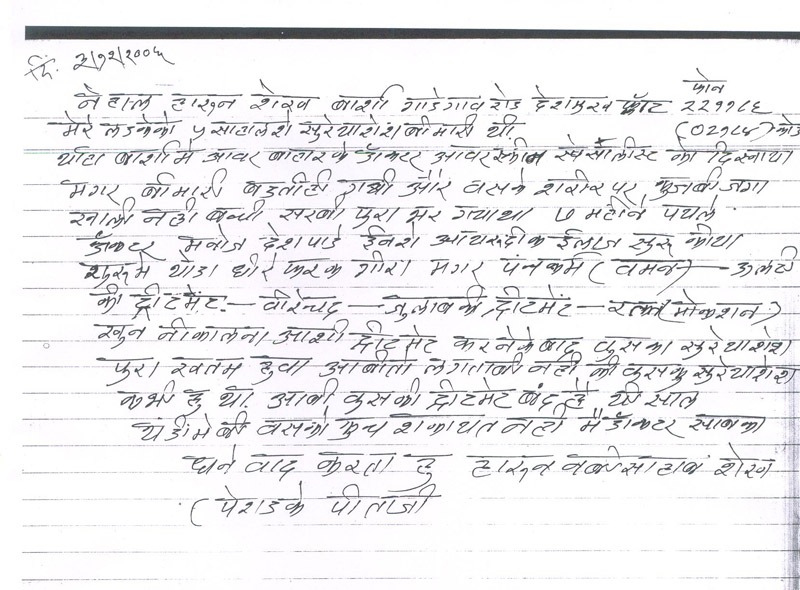 दि. ३/१२/२००५
फोन
नेहाल हारुन शेख बार्शी गाडेगाव रोड देशमुख प्लॉट २२११८६
मेरे लडकेको ५ सालसे सुरेयाशेश बीमारी थी. (०२१८६) कोड
यहा बार्शीमे आवर बाहारके डॉक्टर आवर स्कीन स्पेसालीस्ट को दिखाया
मगर बीमारी बडतीही गयी और उसके शरीर पर कुजबी जगा
खाली नही बच्ची सरबी पुरा भर गयाथा ७ महीने पयले
डॉक्टर मनोज देशपांडे ईनसे आयरुर्वेदीक ईलाज सुरु कीया
शुरुमे थोडा धीरे फरक गीरा मगर पंचकर्म (वमन) — उलटी
की ट्रीटमेंट — वीरेच्यद — जुलाब की ट्रीटमेंट — रक्त (मोक्शन)
खुन नीकालना आशी ट्रीटमेट करनेके बाद उसका सुरेयाशेश
पुरा खतम हुवा आबीतो लगताबी नही की उसकु सुरेयाशेश
कभी हु था. आबी उसकी ट्रीटमेट बंद है थी साल
थंडीमेबी उसको कुच शीकायत नही मै डॉक्टर साबका
धने वाद करता हु हारुन नबीसाहाब शेख
(पेशंडके पीताजी